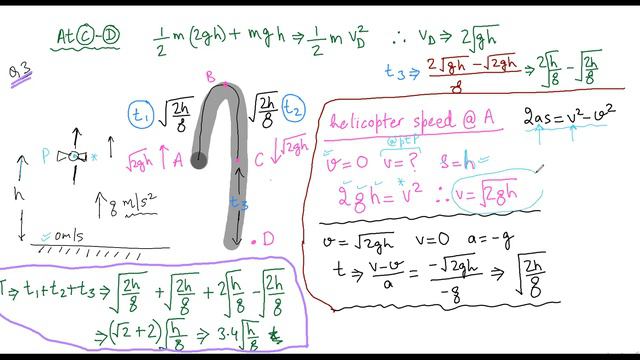 At C-D ½m(2gh) + mgh ⇒ ½ m V_D² ∴ V_D ⇒ 2√gh
Q.3
t₃ ⇒ (2√gh - √2gh)/g ⇒ 2√(h/g) - √(2h/g)
B
t₁ √(2h/g) √(2h/g) t₂
P *
√2gh ↑ A C ↓√2gh
h
↑ g m/s²
t₃
0 m/s
D
helicopter speed @ A 2as = v² - u²
@ pt P
u = 0 v = ? s = h
2gh = v² ∴ v = √2gh
u = √2gh v = 0 a = -g
t ⇒ (v-u)/a = -√2gh/-g ⇒ √(2h/g)
T ⇒ t₁ + t₂ + t₃ ⇒ √(2h/g) + √(2h/g) + 2√(h/g) - √(2h/g)
⇒ (√2 + 2)√(h/g) ⇒ 3.4√(h/g)